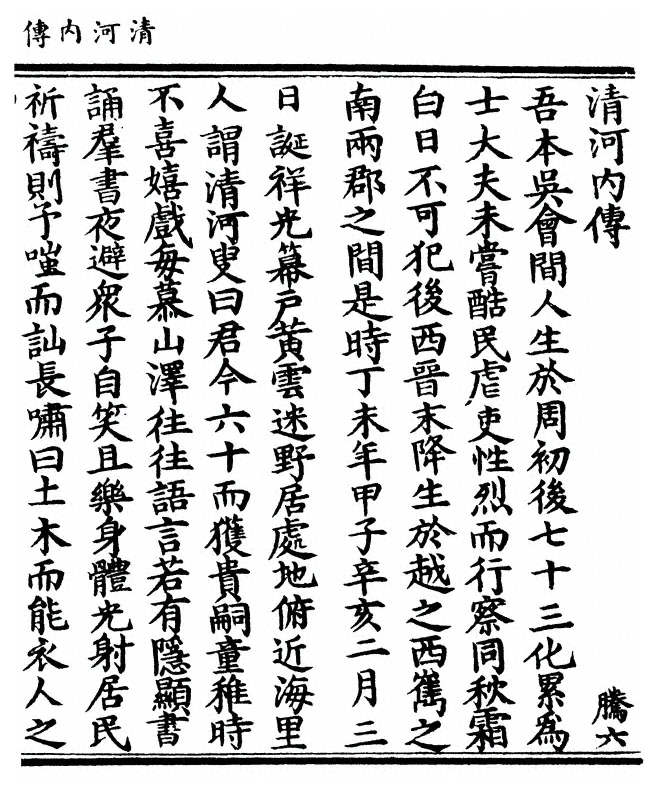 清河内傳
清河内傳
騰六
吾本吳會間人生於周初後七十三化累為
士大夫未嘗酷民虐吏性烈而行察同秋霜
白日不可犯後西晉末降生於越之西雟之
南兩郡之間是時丁未年甲子辛亥二月三
日誕祥光幕戸黃雲迷野居處地俯近海里
人謂清河叟曰君今六十而獲貴嗣童稚時
不喜嬉戲每慕山澤往往語言若有隱顯書
誦羣書夜避衆子自笑且樂身體光射居民
祈禱則予嗤而訕長嘯曰土木而能衣人之